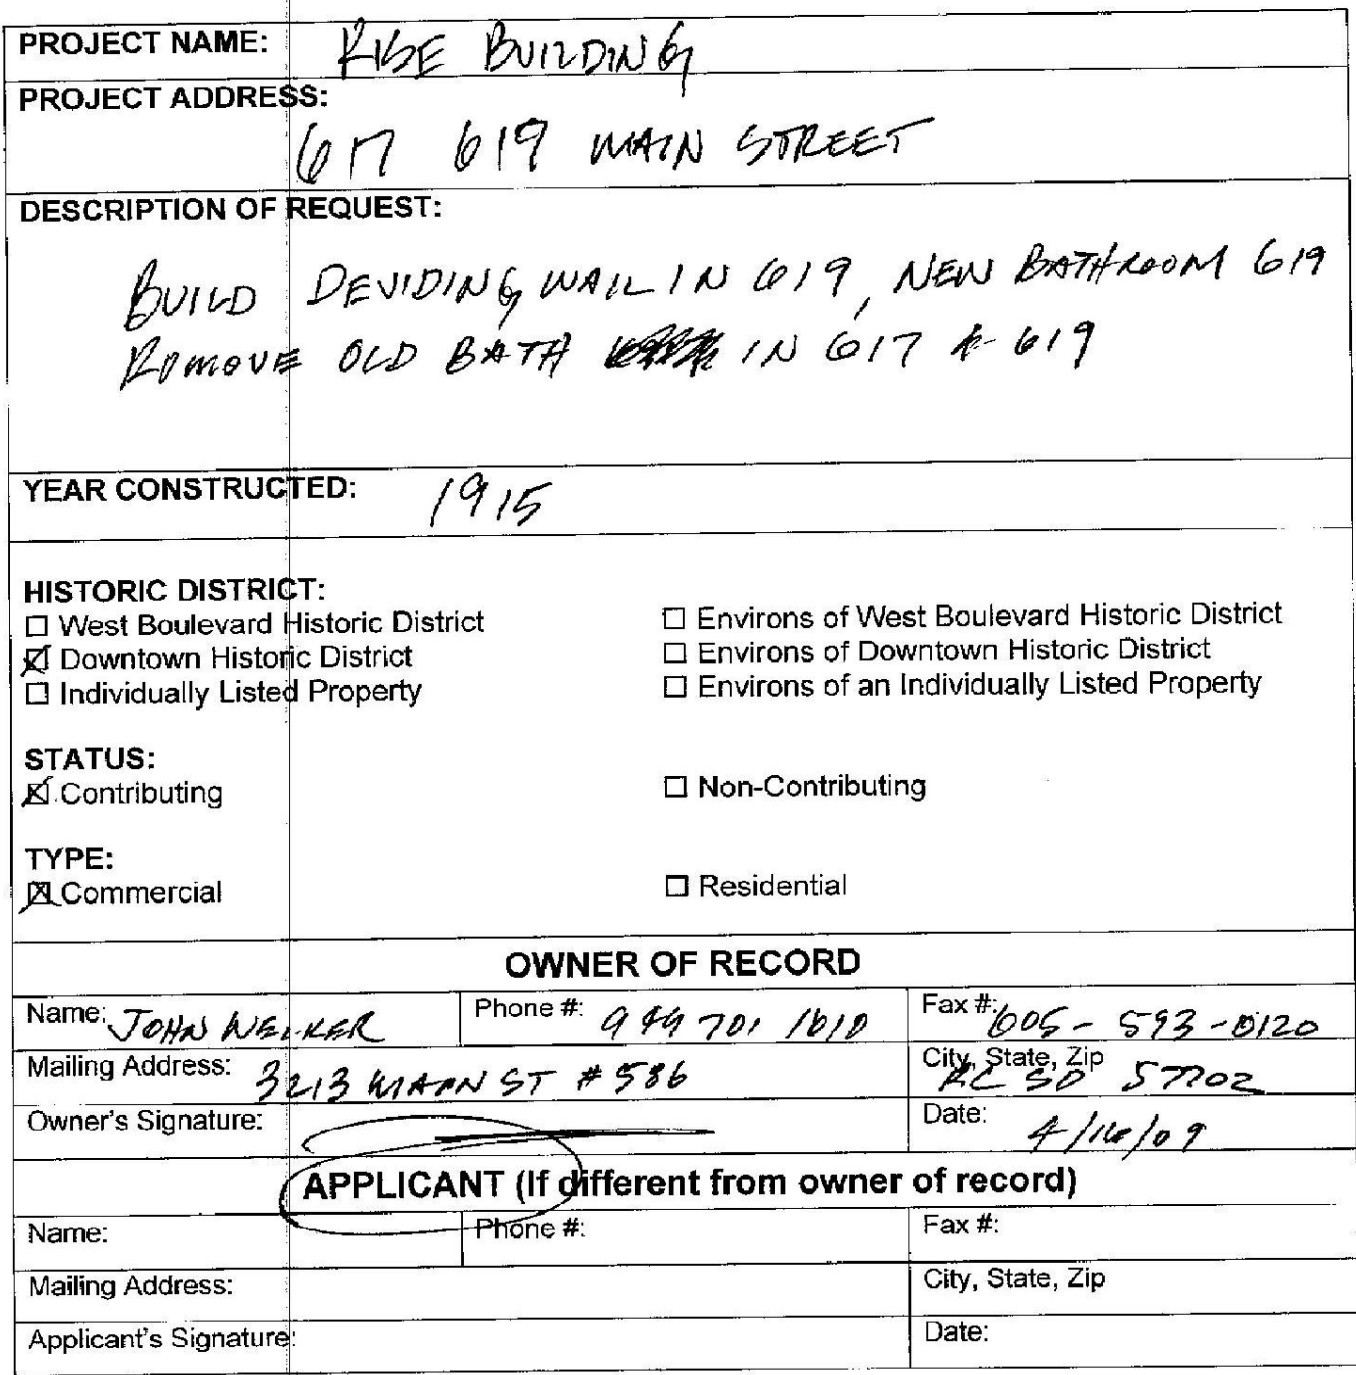 PROJECT NAME: RISE BUILDING
PROJECT ADDRESS:
617 619 MAIN STREET
DESCRIPTION OF REQUEST:
BUILD DEVIDING WALL IN 619, NEW BATHROOM 619
REMOVE OLD BATH IN 617 & 619
YEAR CONSTRUCTED: 1915
HISTORIC DISTRICT:
☐ West Boulevard Historic District ☐ Environs of West Boulevard Historic District
☒ Downtown Historic District ☐ Environs of Downtown Historic District
☐ Individually Listed Property ☐ Environs of an Individually Listed Property
STATUS:
☒ Contributing ☐ Non-Contributing
TYPE:
☒ Commercial ☐ Residential
OWNER OF RECORD
Name: JOHN WELKER Phone #: 949 701 1610 Fax #: 605-593-0120
Mailing Address: 3213 MAIN ST #586 City, State, Zip RC SD 57702
Owner's Signature: Date: 4/16/09
APPLICANT (If different from owner of record)
Name: Phone #: Fax #:
Mailing Address: City, State, Zip
Applicant's Signature: Date: